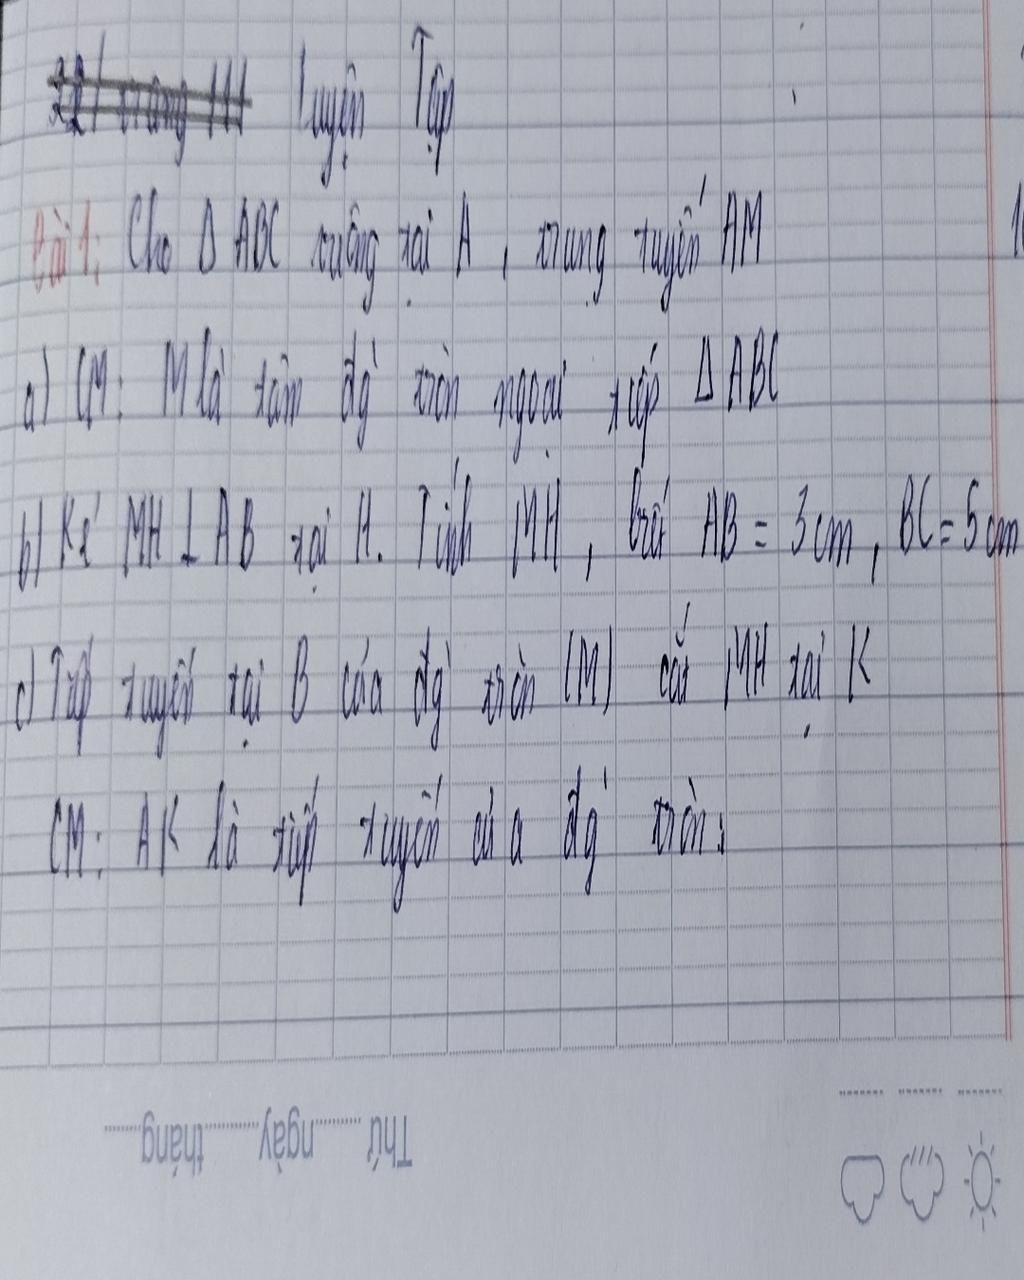 22/ trang 111 Luyện Tập
Bài 1: Cho Δ ABC vuông tại A, trung tuyến AM
a) CM: M là tâm đg̀ tròn ngoại tiếp Δ ABC
b) Kẻ MH ⊥ AB tại H. Tính MH, biết AB = 3cm, BC = 5cm
c) Tiếp tuyến tại B của đg̀ tròn (M) cắt MH tại K
CM: AK là tiếp tuyến của đg̀ tròn.
Thứ ........ ngày ........ tháng ........